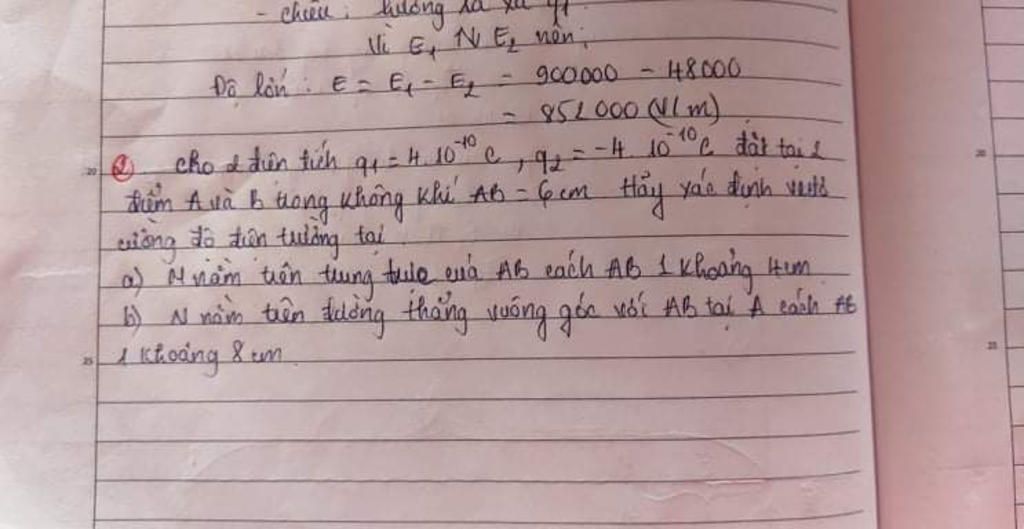 - chiều : hướng ra xa q1
Vì E1 ⇅ E2 nên:
Độ lớn : E = E1 - E2 = 900000 - 48000
= 852000 (V/m)
20 2 cho 2 điện tích q1 = 4.10^-10 C, q2 = -4.10^-10 C đặt tại 2
điểm A và B trong không khí AB = 6cm Hãy xác định vectơ
cường độ điện trường tại
a) N nằm trên trung trực của AB cách AB 1 khoảng 4cm
b) N nằm trên đường thẳng vuông góc với AB tại A cách AB
25 1 khoảng 8cm
20
25